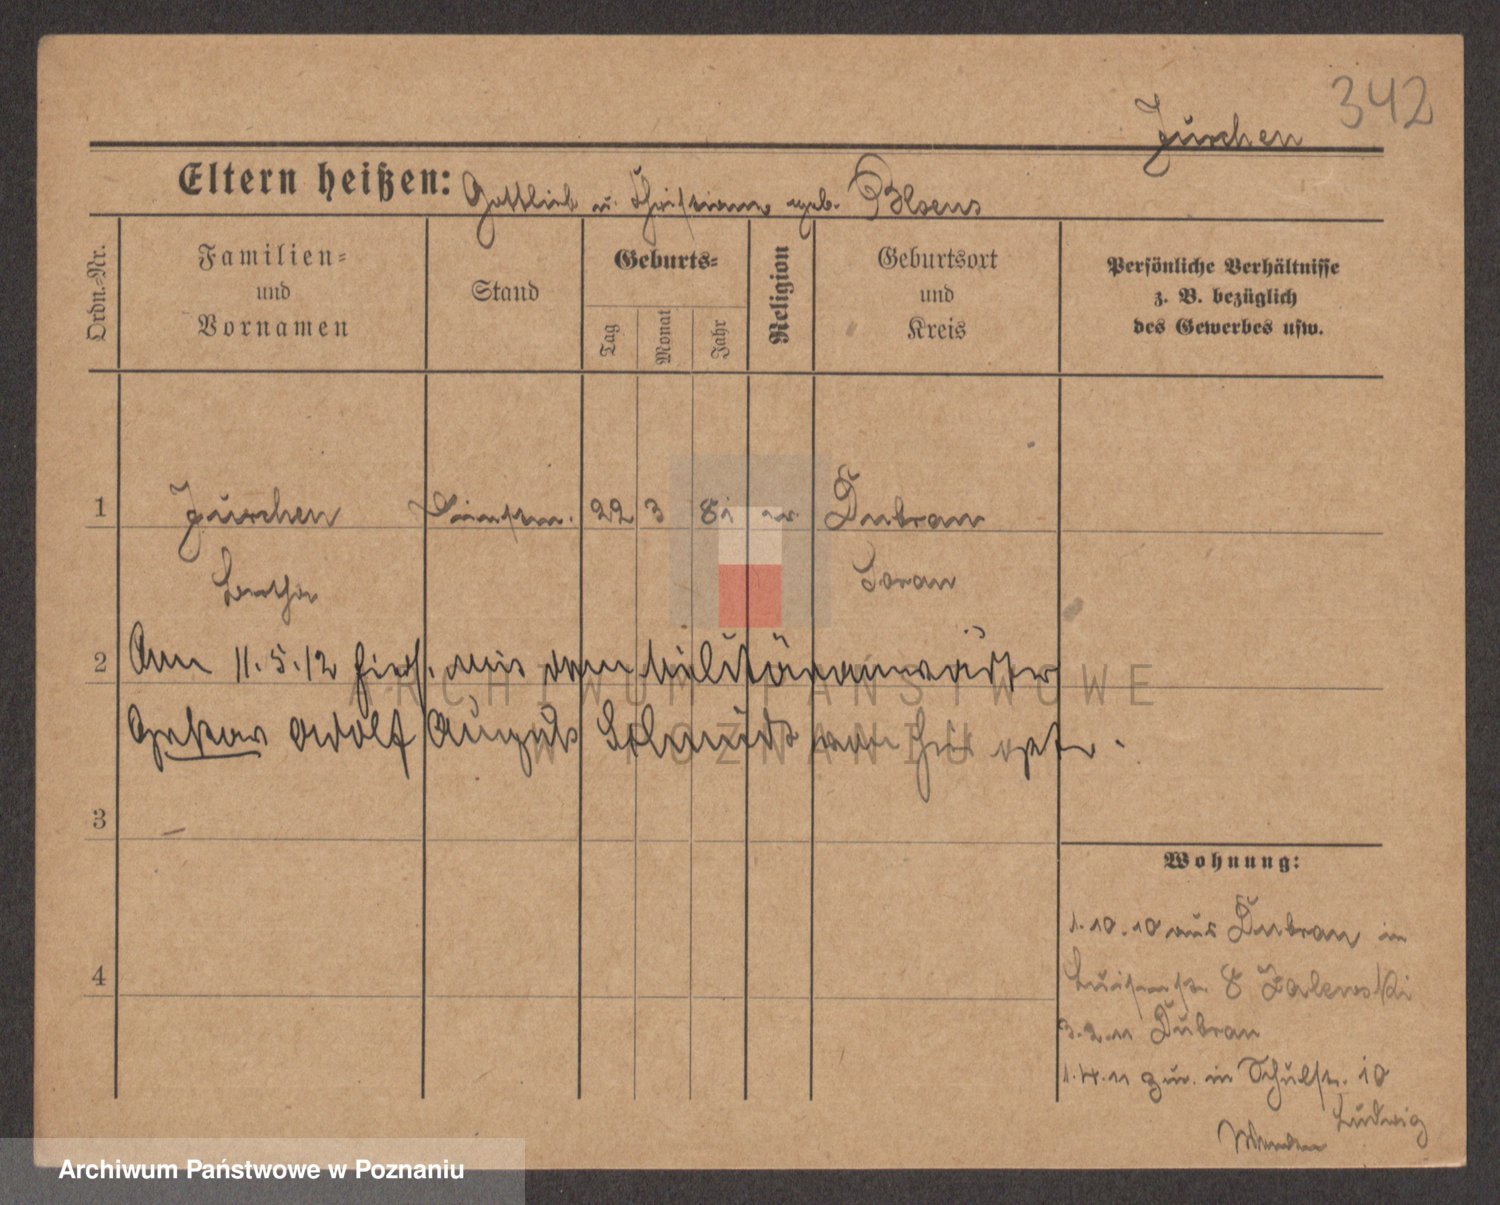 342
Jurchen
Eltern heißen: Gottlieb u. Christiane geb.
Ordn.-Nr.
Familien-
und
Vornamen
Stand
Geburts-
Tag
Monat
Jahr
Religion
Geburtsort
und
Kreis
Persönliche Verhältnisse
z. B. bezüglich
des Gewerbes usw.
1 Jurchen 22 3 81 ev. Dubrau
Bertha Sorau
2 Am 11. 5. 12 hiers. mit dem Militäranwärter
Adolf August Schmidt
3
Wohnung:
1. 10. 10 aus Dubrau in
8 Zalewski
4
3. 2. 11 Dubrau
1. 4. 11 zur. in Schulstr. 10
Ludwig
ARCHIWUM PAŃSTWOWE
W POZNANIU
Archiwum Państwowe w Poznaniu